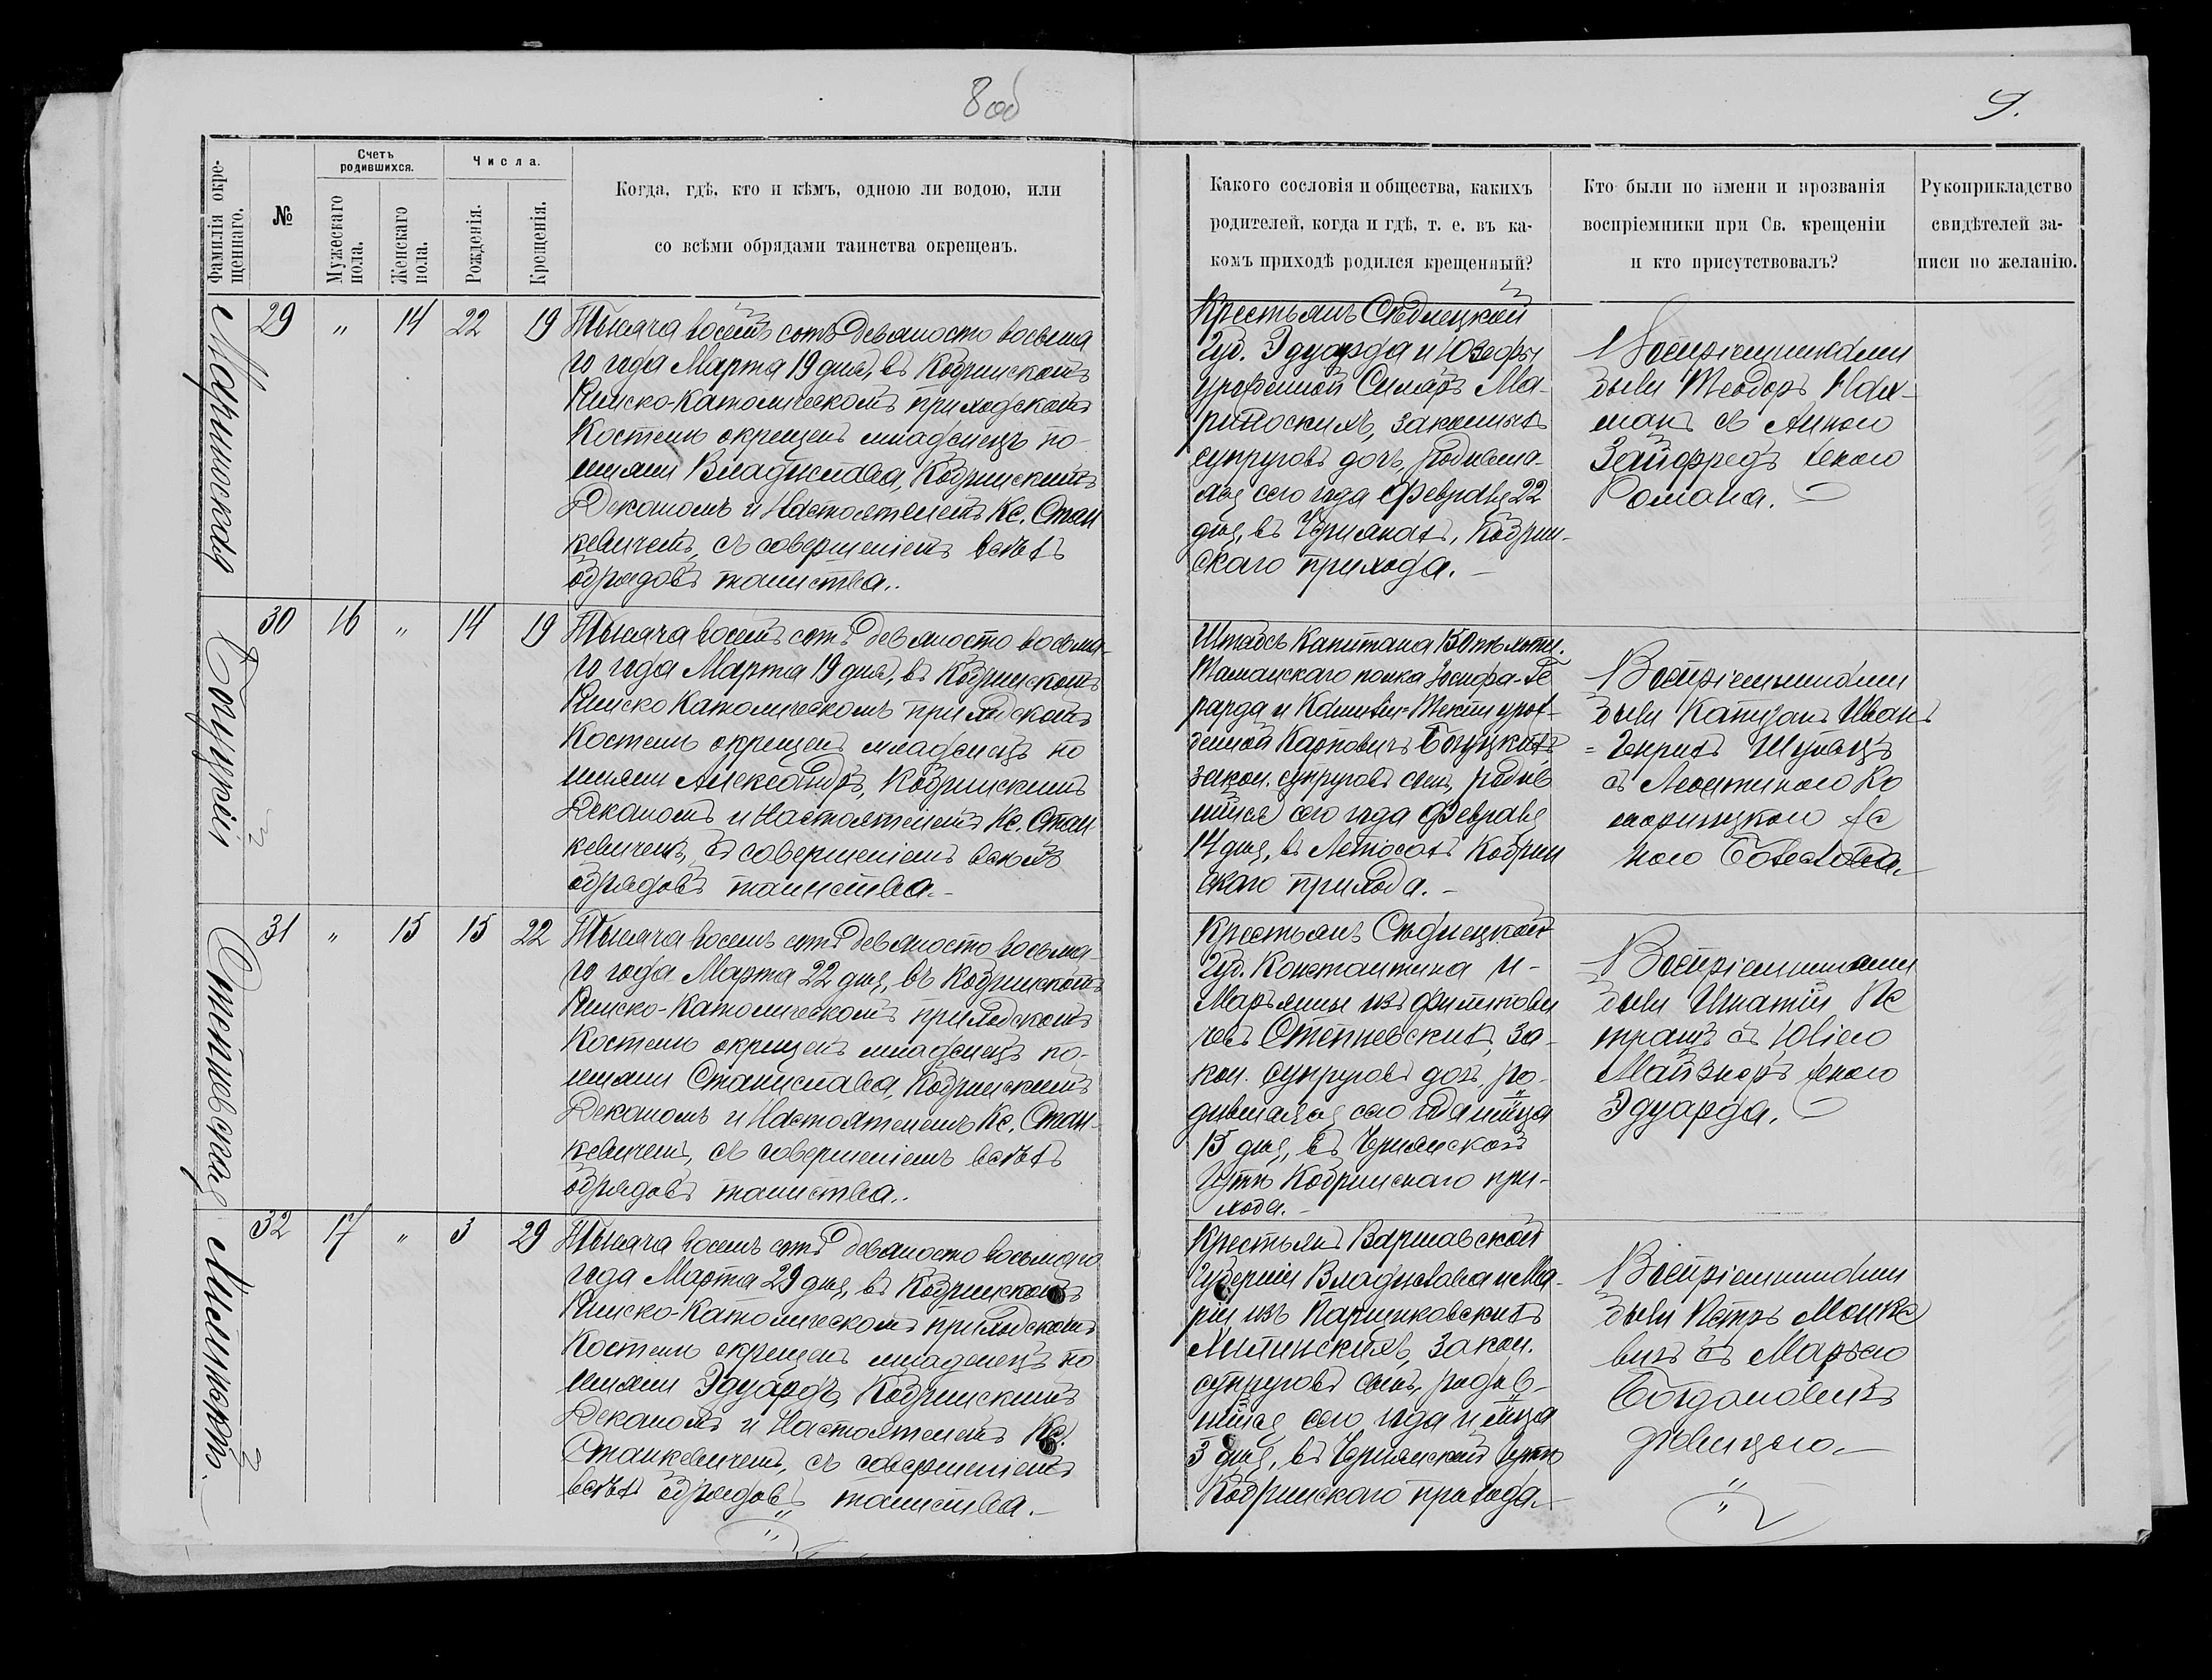 8 об
9.
Фамилія окре-
щеннаго.
№
Счетъ
родившихся.
Мужескаго
пола.
Женскаго
пола.
Числа.
Рожденія.
Крещенія.
Когда, гдѣ, кто и кѣмъ, одною ли водою, или
со всѣми обрядами таинства окрещенъ.
Какого сословія и общества, какихъ
родителей, когда и гдѣ, т. е. въ ка-
комъ приходѣ родился крещенный?
Кто были по имени и прозванія
воспріемники при Св. крещеніи
и кто присутствовалъ?
Рукоприкладство
свидѣтелей за-
писи по желанію.
29 " 14 22 19
Тысяча восемь сотъ девяносто восьма
го года Марта 19 дня, въ Кобринскомъ
Римско-Католическомъ приходскомъ
Костелѣ окрещенъ младенецъ по
имени Владислава, Кобринскимъ
Деканомъ и Настоятелемъ Кс. Стан
кевичемъ, съ совершеніемъ всѣхъ
обрядовъ таинства.
Крестьянъ Сѣдлецкой
Губ. Эдуарда и Юзефы
урожденной Ма-
законныхъ
супруговъ дочь, родивша-
яся сего года Февраля 22
дня, въ Чернянахъ, Кобрин-
скаго прихода.
Воспріемниками
были Теодоръ Най-
манъ съ Анною
Зейфредъ женою
Романа.
Боцуцкій
30 16 " 14 19
Тысяча восемь сотъ девяносто восьма-
го года Марта 19 дня, въ Кобринскомъ
Римско Католическомъ приходскомъ
Костелѣ окрещенъ младенецъ по
имени Александръ, Кобринскимъ
Деканомъ и Настоятелемъ Кс. Стан
кевичемъ, съ совершеніемъ всѣхъ
обрядовъ таинства.
Штабсъ Капитана 150 пѣхотн.
Таманскаго полка Іосифа-Ге
рарда и урож-
денной Карповичъ
закон. супруговъ сынъ, родив
шійся сего года Февраля
14 дня, въ Кобрин
скаго прихода.
Воспріемниками
были Капитанъ Иванъ
= Генрихъ Шульцъ
съ Леонтиною Ко
же
ною Болеслава.
Степневская
31 " 15 15 22
Тысяча восемь сотъ девяносто восьма-
го года Марта 22 дня, въ Кобринскомъ
Римско-Католическомъ приходскомъ
Костелѣ окрещенъ младенецъ по-
имени Станислава, Кобринскимъ
Деканомъ и Настоятелемъ Кс. Стан-
кевичемъ, съ совершеніемъ всѣхъ
обрядовъ таинства.
Крестьянъ Сѣдлецкой
Губ. Константина и-
Марьянны изъ Филипови
чевъ Степневскихъ, за-
кон. супруговъ дочь, ро-
дившаяся сего года и мѣсяца
15 дня, въ Чернянской
Гутѣ Кобринскаго при-
хода.
Воспріемниками
были Игнатій Пе
трашъ съ Юліею
Майзнеръ женою
Эдуарда.
32 17 " 3 29
Тысяча восемь сотъ девяносто восьмаго
года Марта 29 дня, въ Кобринскомъ
Римско-Католическомъ приходскомъ
Костелѣ окрещенъ младенецъ по
имени Эдуардъ, Кобринскимъ
Деканомъ и Настоятелемъ Кс.
Станкевичемъ, съ совершеніемъ
всѣхъ обрядовъ таинства.
Крестьянъ Варшавской
Губерніи Владислава и Ма-
ріи изъ
закон.
супруговъ сынъ, родив-
шійся сего года и мѣсяца
3 дня, въ Чернянской Гутѣ
Кобринскаго прихода.
Воспріемниками
были Петръ Монке
вичъ съ Марьею
Богдановичъ
дѣвицею.